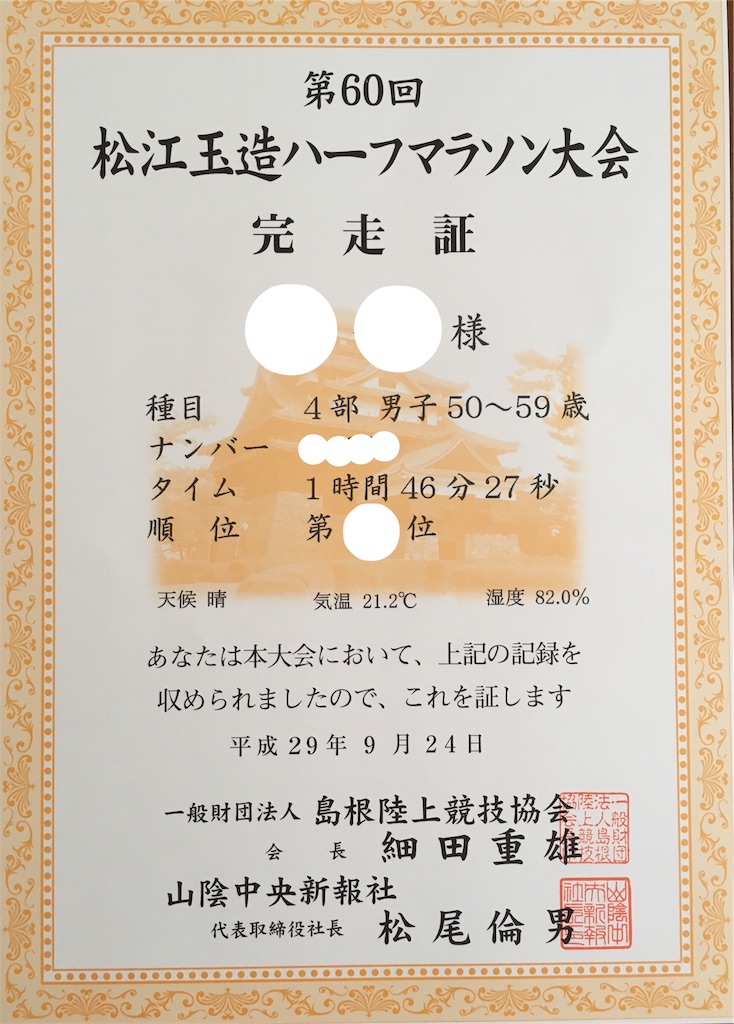 第60回
松江玉造ハーフマラソン大会
完走証
様
種目 4部 男子 50～59歳
ナンバー
タイム 1時間46分27秒
順位 第 位
天候 晴 気温 21.2℃ 湿度 82.0%
あなたは本大会において、上記の記録を
収められましたので、これを証します
平成29年9月24日
一般財団法人 島根陸上競技協会
会長 細田重雄
山陰中央新報社
代表取締役社長 松尾倫男